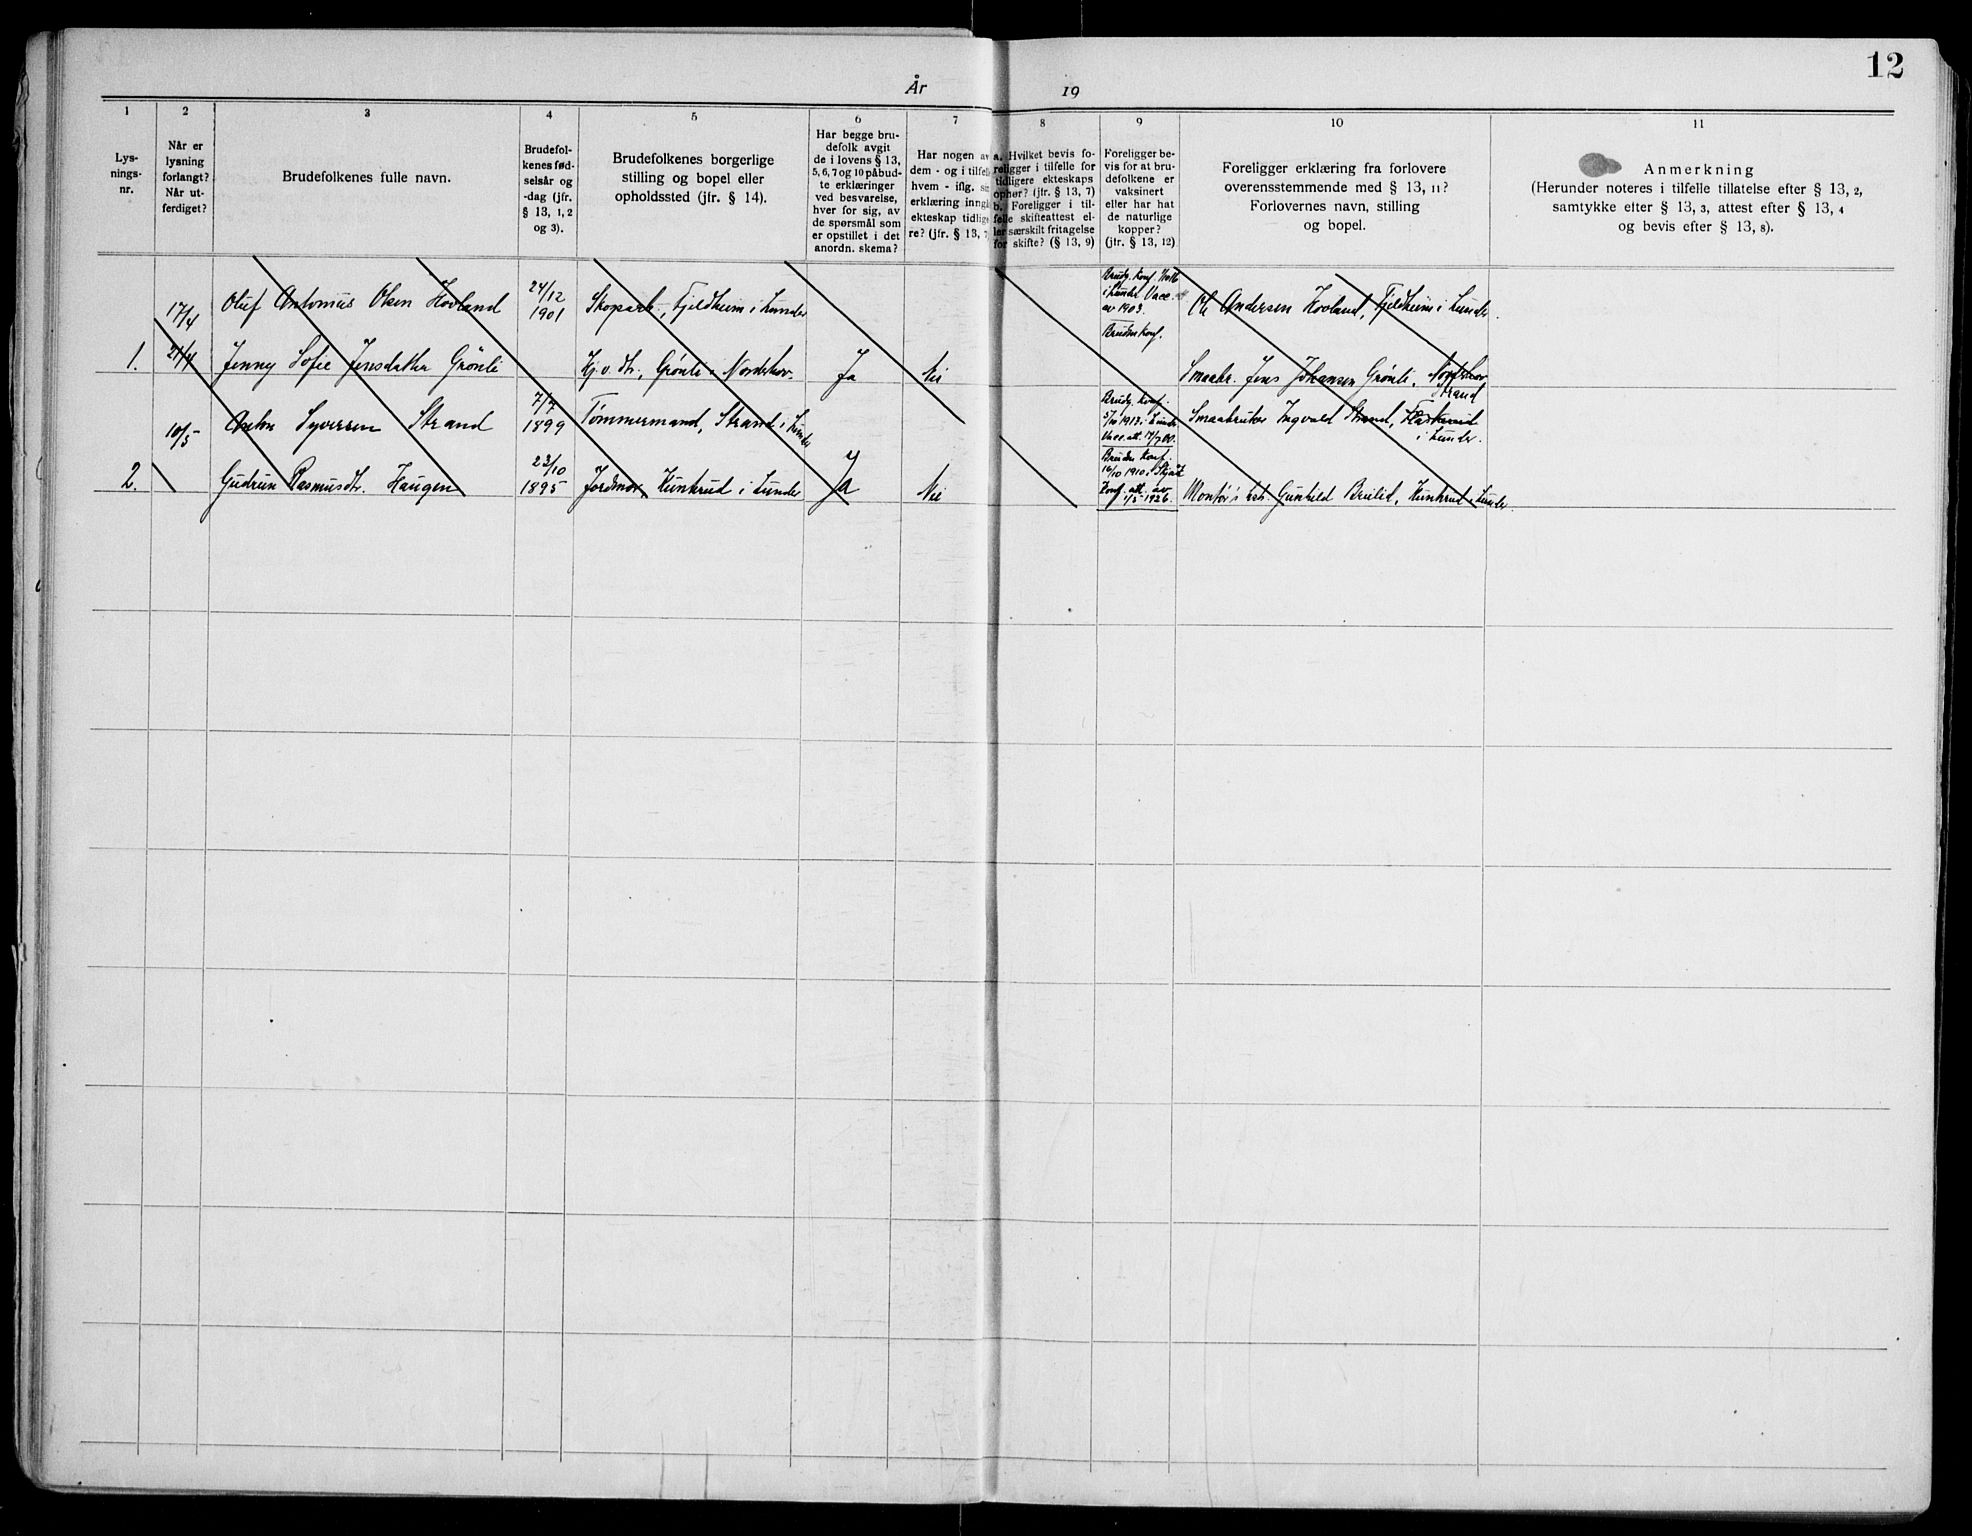 12
År 19
1 2 3 4 5 6 7 8 9 10 11
Lys-
nings-
nr.
Når er
lysning
forlangt?
Når ut-
ferdiget?
Brudefolkenes fulle navn.
Brudefol-
kenes fød-
selsår og
-dag (jfr.
§ 13, 1, 2
og 3).
Brudefolkenes borgerlige
stilling og bopel eller
opholdssted (jfr. § 14).
Har begge bru-
defolk avgit
de i lovens § 13,
5, 6, 7 og 10 påbud-
te erklæringer
ved besvarelse,
hver for sig, av
de spørsmål som
er opstillet i det
anordn. skema?
Har nogen av
dem - og i tilfelle
hvem - iflg. sin
erklæring inngå
ekteskap tidlige
re? (jfr. § 13, 7
a. Hvilket bevis fo-
religger i tilfelle for
tidligere ekteskaps
ophør? (jfr. § 13, 7)
b. Foreligger i til-
felle skifteattest el-
ler særskilt fritagelse
for skifte? (§ 13, 9)
Foreligger be-
vis for at bru-
defolkene er
vaksinert
eller har hat
de naturlige
kopper?
(jfr. § 13, 12)
Foreligger erklæring fra forlovere
overensstemmende med § 13, 11?
Forlovernes navn, stilling
og bopel.
Anmerkning
(Herunder noteres i tilfelle tillatelse efter § 13, 2,
samtykke efter § 13, 3, attest efter § 13, 4
og bevis efter § 13, 8).
17/4
Oluf Antonius Olsen Hovland
24/12
1901
Skoparb., Fjeldheim i Lunder
Brudg. Konf.
i Lunder Vacc.
av 1903.
Bruden Konf.
Andersen Hovland, Fjeldheim i Lunder.
1. 21/4 Jenny Sofie Jensdatter Grönli
Hj. v. dtr., Grönli i Norderhov.
Ja Nei
Smaabr. Jens Johansen Grönli, Norderhov
10/5
Anton Syversen Strand
7/7
1899
Tömmermand, Strand i Lunder
Brudg. Konf.
5/10 1913 i Lunder
Vacc. att. 17/7 00.
Strand
Smaabruker Ingvald Strand,
i Lunder.
2. Gudrun Rasmusdtr. Haugen
23/10
1895
Jordmor, Kunkrud i Lunder
Ja Nei
Bruden Konf.
16/10 1910 i Skjåk
Konf. att. av
1/5 1926.
Montör's hstr. Gunhild Brulid, Kunkrud i Lunder.